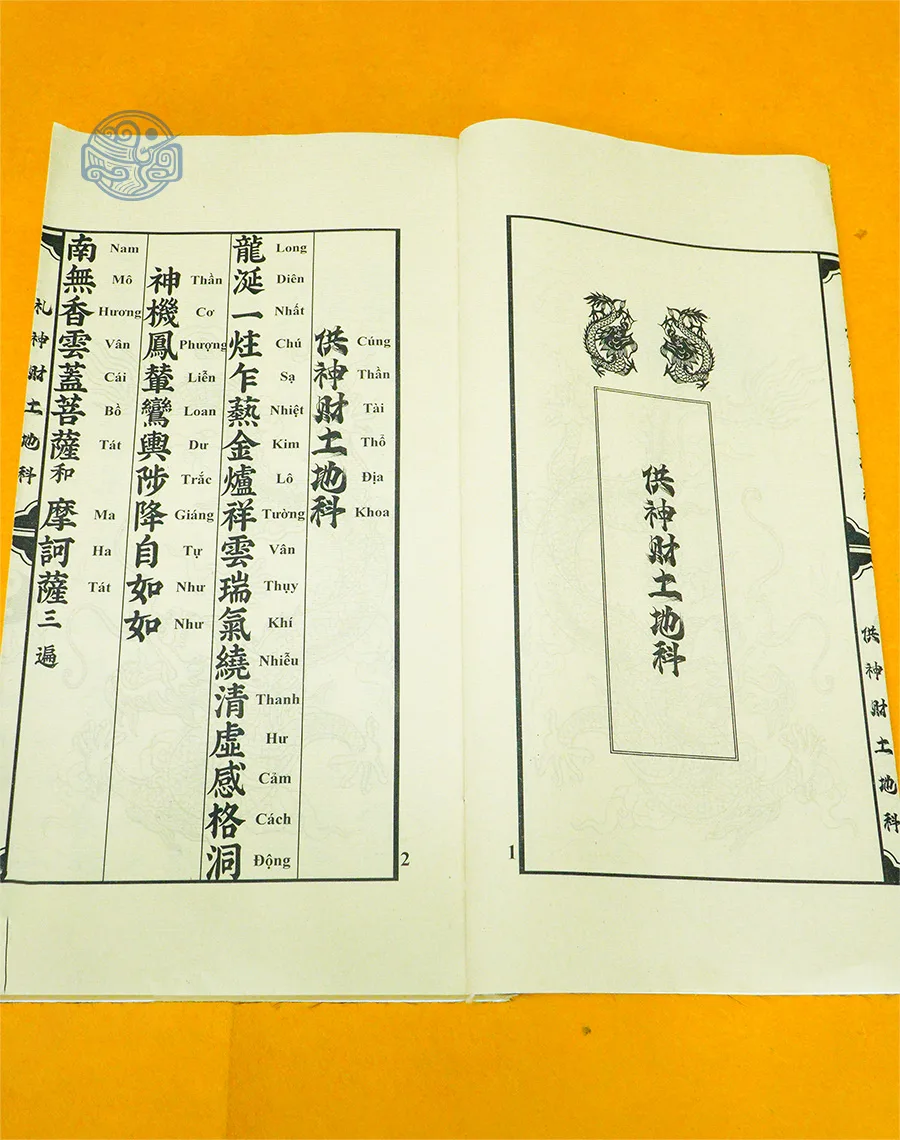 供神財土地科
1
供神財土地科
供神財土地科
Cúng Thần Tài Thổ Địa Khoa
龍涎一炷乍熱金爐祥雲瑞氣繞清虛感格洞
Long Diên Nhất Chú Sạ Nhiệt Kim Lô Tường Vân Thụy Khí Nhiễu Thanh Hư Cảm Cách Động
神機鳳輦鸞輿陟降自如如
Thần Cơ Phượng Liễn Loan Dư Trắc Giáng Tự Như Như
南無香雲蓋菩薩和摩訶薩三遍
Nam Mô Hương Vân Cái Bồ Tát Ma Ha Tát
2
礼神財土地科